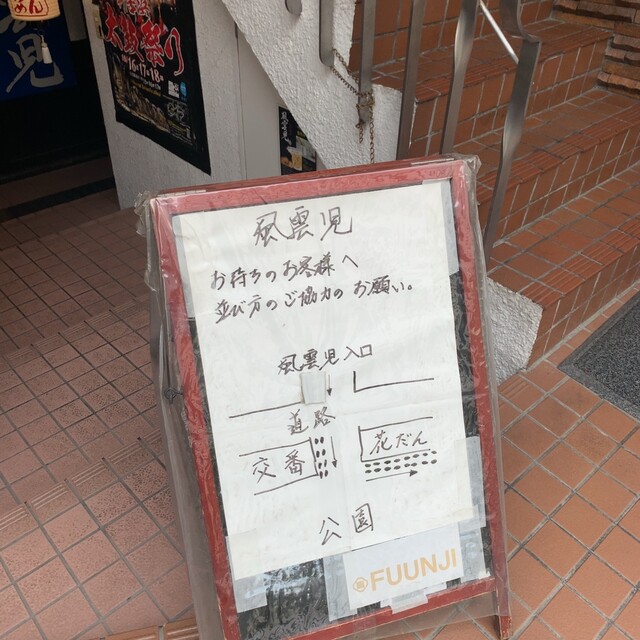 めん
児
太鼓祭り
16・17・18
風雲児
お待ちのお客様へ
並び方のご協力のお願い。
風雲児入口
道路
交番
花だん
公園
FUUNJI